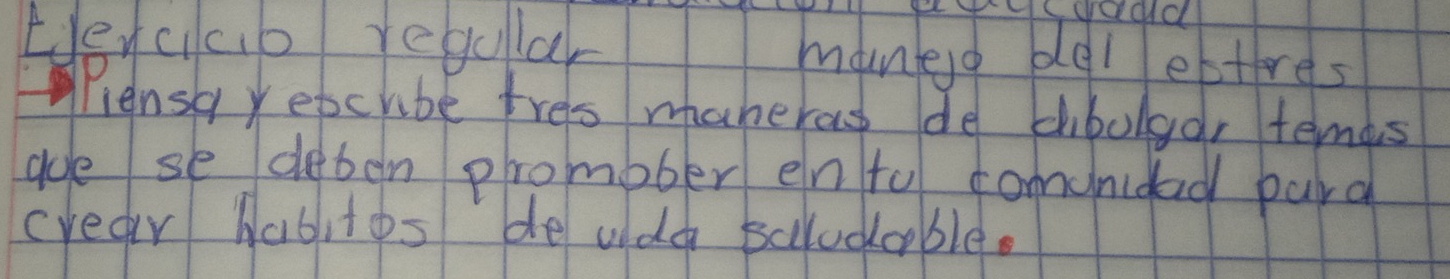 Ejercicio regular manejo del estres
Piensa y escribe tres maneras de dibulgar temas
que se deben promober en tu comunidad para
crear habitos de vida saludable.